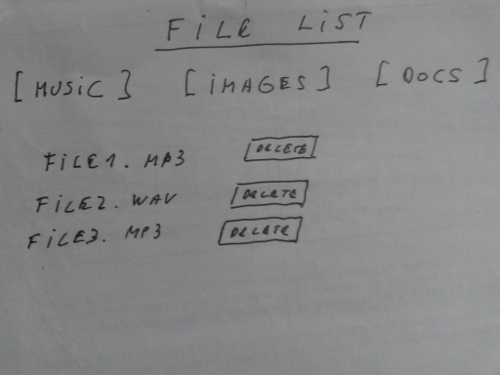 FiLE LiST
[MUSiC] [iMAGES] [DOCS]
FiLE1.MP3 DELETE
FiLE2.WAV DELETE
FiLE3.MP3 DELETE